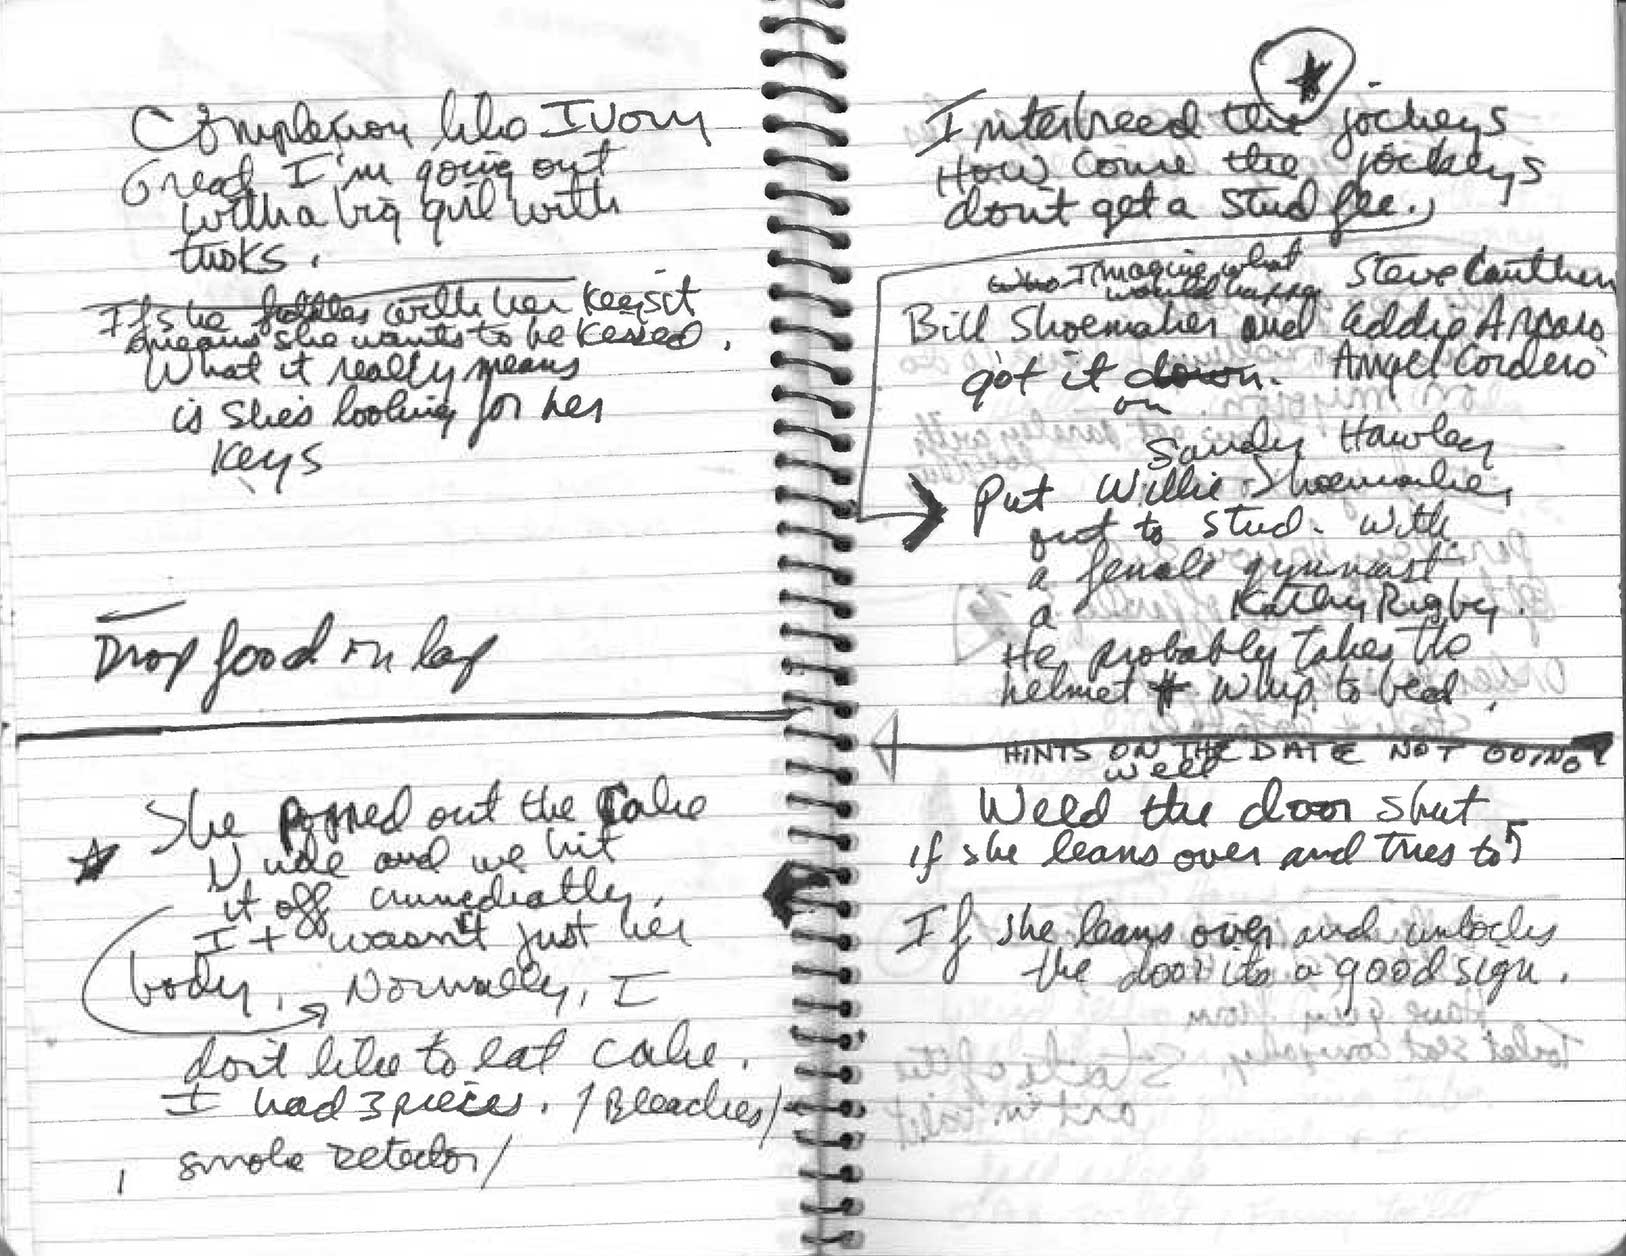 Complexion like Ivory
Great I'm going out
with a big girl with
tusks.
If she fiddles with her keys it
means she wants to be kessed.
What it really means
is She's looking for her
keys
Drop food on lap
She popped out the Cake
Nude and we hit
it off immediately.
It wasn't just her
body. Normally, I
don't like to eat cake.
I had 3 pieces. / Bleachers /
smoke Detector /
Interbreed the jockeys
How come the jockeys
don't get a stud fee.
who I imagine what
would happen
Steve Cauthen
Bill Shoemaker and Eddie Arcaro
got it down. Angel Cordero
on
Sandy Hawley
Put Willie Shoemaker
out to stud. with
a female gymnast
a Kathy Rigby.
He probably takes the
helmet + whip to bed.
HINTS ON THE DATE NOT GOING
well
Weld the door shut
if she leans over and tries to
If she leans over and unlocks
the door its a good sign.